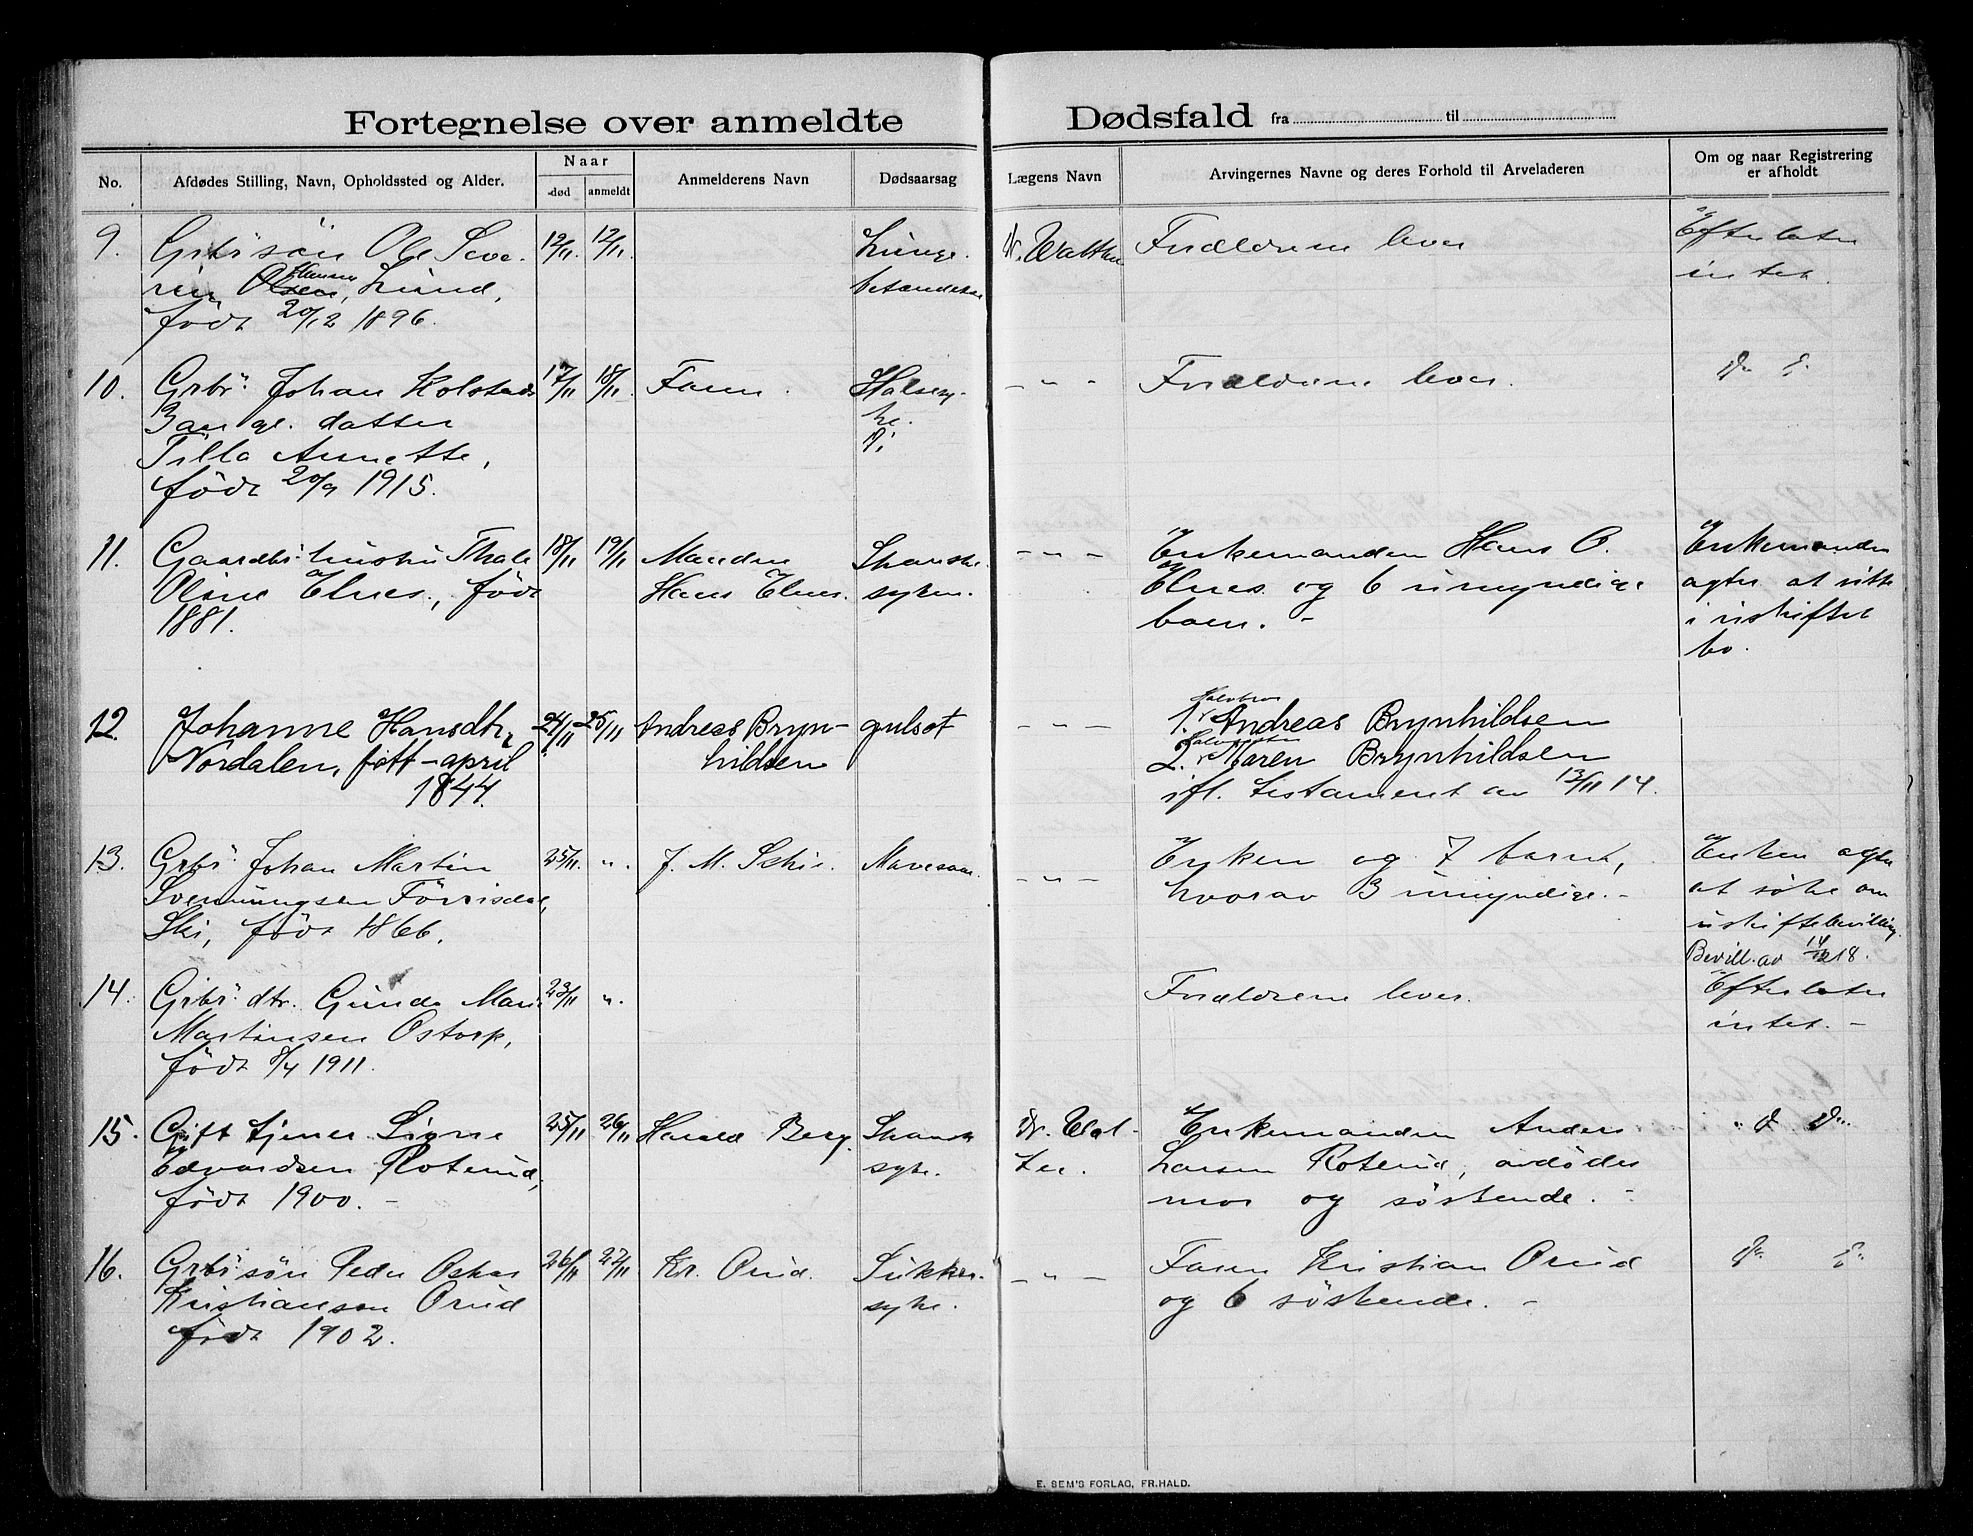 Fortegnelse over anmeldte Dødsfald fra til
No.
Afdødes Stilling, Navn, Opholdssted og Alder.
Naar
død
anmeldt
Anmelderens Navn
Dødsaarsag
Lægens Navn
Arvingernes Navne og deres Forhold til Arveladeren
Om og naar Registrering
er afholdt
9.
Grbr. søn Ole Seve-
rin Olsen, Lund,
Hansen
født 20/12 1896.
12/11.
12/11.
Lunge-
betændelse
Dr. Walther
Forældrene lever
Efterlater
intet.
10.
Grbr. Johan Kolstads
datter
Tilla Annette,
født 20/9 1915.
17/11
18/11.
Faren.
Halssy-
ke.
- " -
Forældrene lever.
Do Do
11.
Gaardbr. hustru Thale
Olsine Elnes, født
1881.
18/11
19/11
Manden
Hans Elnes.
Spanske-
syken.
- " -
Enkemanden Hans O.
Elnes og 6 umyndige
barn. -
Enkemanden
agter at sitte
i uskiftet
bo.
12.
Johanne Hansdtr,
Nordalen, født - april
1844.
24/11
25/11
Andreas Bryn-
hildsen
gulsot
- " -
Halvbror
1. Andreas Brynhildsen
Halvsøster
2. Maren Brynhildsen
ifl. testament av 13/11 14.
13.
Grbr. Johan Martin
Svenningsen
Ski, født 1866.
25/11.
".
J. M. Ski.
Mavesaar.
- " -
Enken og 7 barn,
hvorav 3 umyndige. -
Enken agter
at søke om
uskiftebevilling.
Bevill. av 14/12 18.
14.
Grbr. dtr. Gunda Marie
Martinsen Ostorp,
født 8/4 1911.
23/11
".
Forældrene lever.
Efterlater
intet. -
15.
Gift tjener Signe
Edvardsen Roterud,
født 1900. -
25/11
26/11
Harald Berg.
Spansk
syke.
Dr. Wal-
ter.
Enkemanden Anders
Larsen Roterud, avdødes
mor og søskende. -
" Do Do
16.
Grbr. søn Peder Oskar
Kristiansen Orud
født 1902.
26/11
27/11
Kr. Orud.
Sukker-
syke.
- " -
Faren Kristian Orud
og 6 søskende. -
Do Do
E. SEM'S FORLAG, FR.HALD.